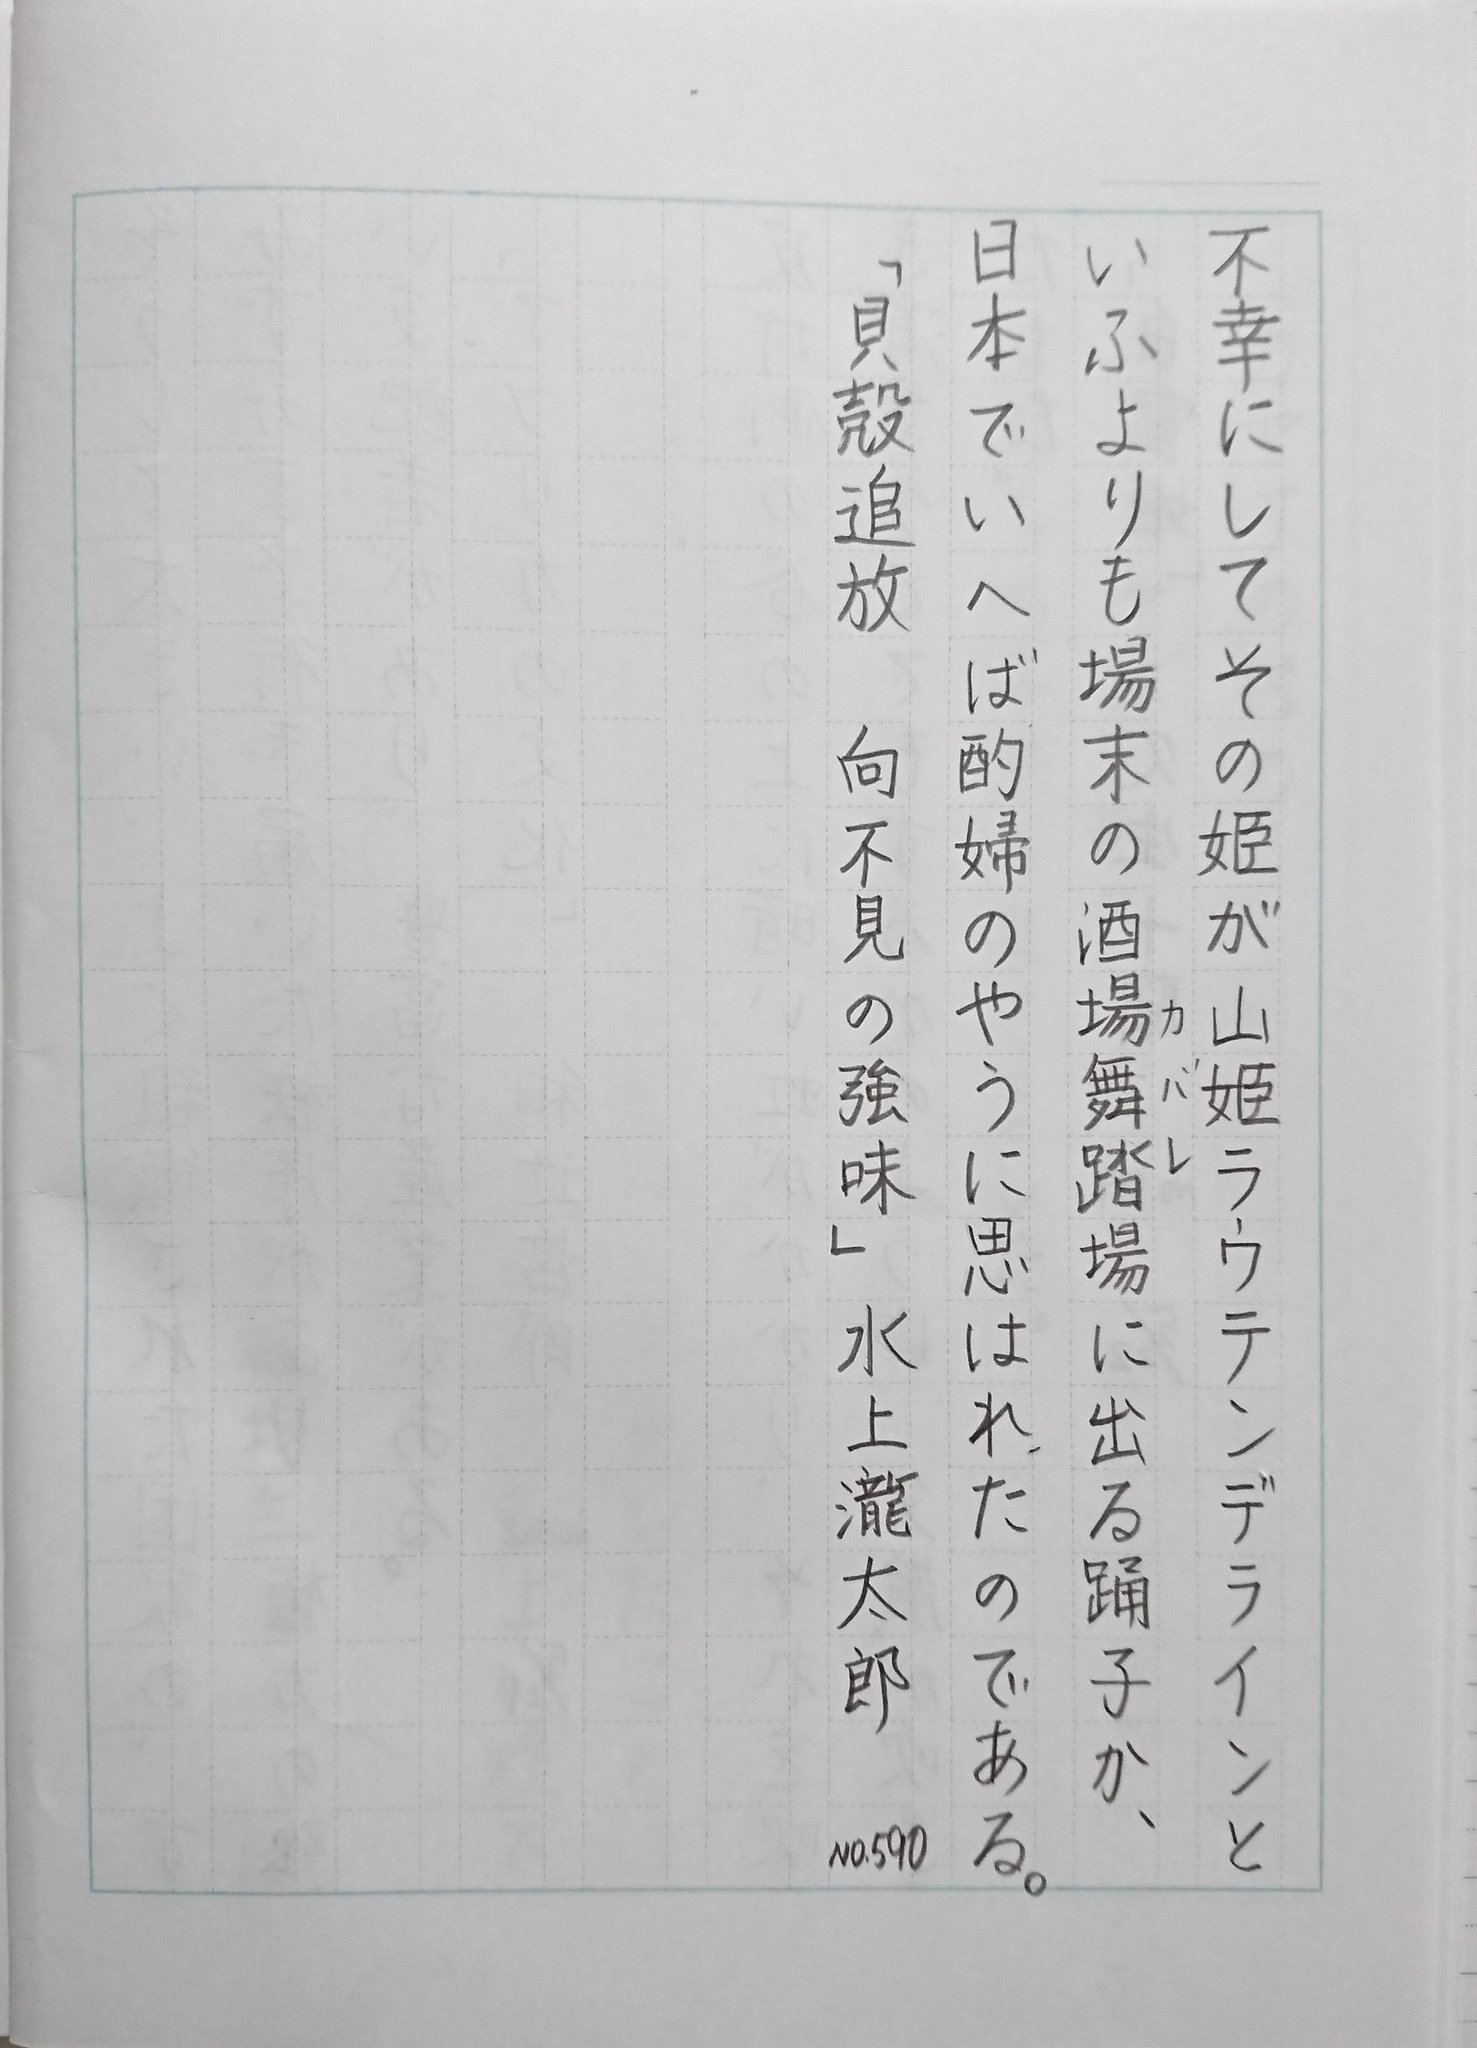 不幸にしてその姫が山姫ラウテンデラインと
いふよりも場末の酒場舞踏場に出る踊子か、
カバレ
日本でいへば酌婦のやうに思はれたのである。
「貝殻追放　向不見の強味」水上瀧太郎
NO.590